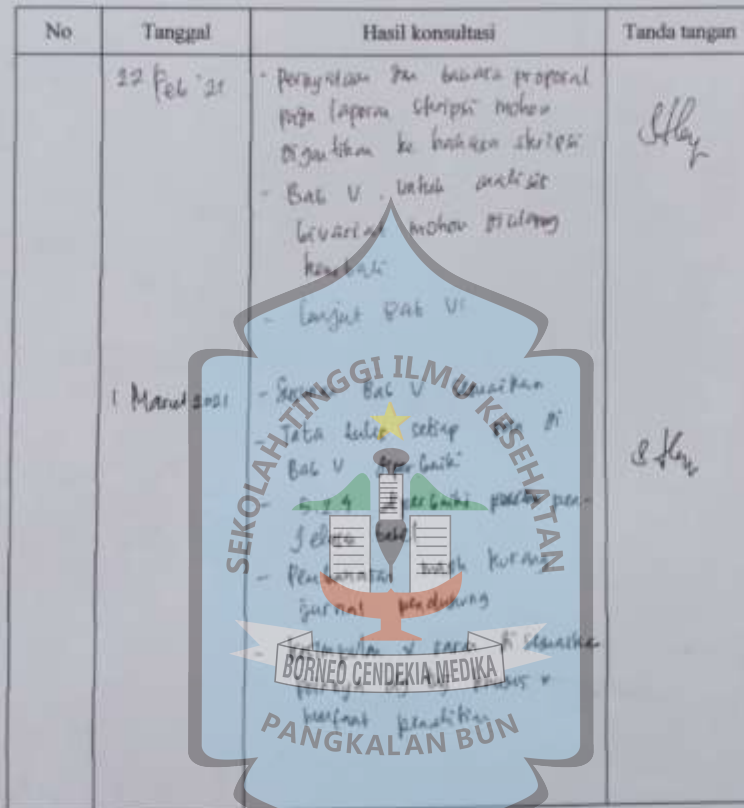 No Tanggal Hasil konsultasi Tanda tangan
22 Feb '21 - Pernyataan dan bahasa proposal
pada laporan skripsi mohon
digantikan ke bahasa skripsi
- Bab V untuk analisis
bivariat mohon diulang
kembali
- Lanjut Bab VI
1 Maret 2021 - Bab V sesuaikan
- Tata tulis setiap di
Bab V diperbaiki
- diperbaiki pen-
jelas tabel
- Pembahasan masih kurang
jurnal pendukung
- Kesimpulan & saran disesuaikan
manfaat penelitian
SEKOLAH TINGGI ILMU KESEHATAN
BORNEO CENDEKIA MEDIKA
PANGKALAN BUN